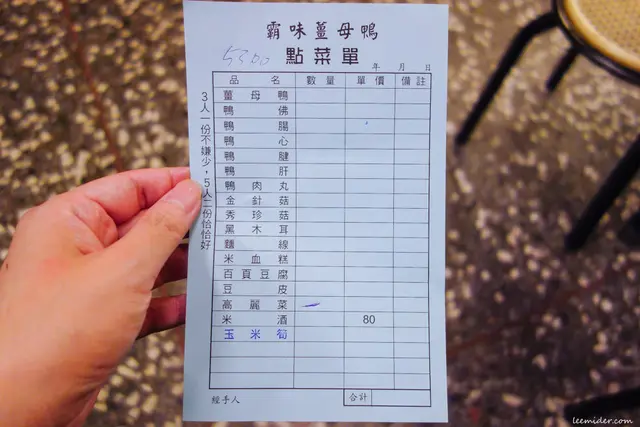 霸味薑母鴨
5300 點菜單
年 月 日
品名 數量 單價 備註
薑母鴨
鴨佛
鴨腸
鴨心
鴨腱
鴨肝
鴨肉丸
金針菇
秀珍菇
黑木耳
麵線
米血糕
百頁豆腐
豆皮
高麗菜
米酒 80
玉米筍
合計
經手人
3人一份不嫌少，5人二份恰恰好
leemider.com